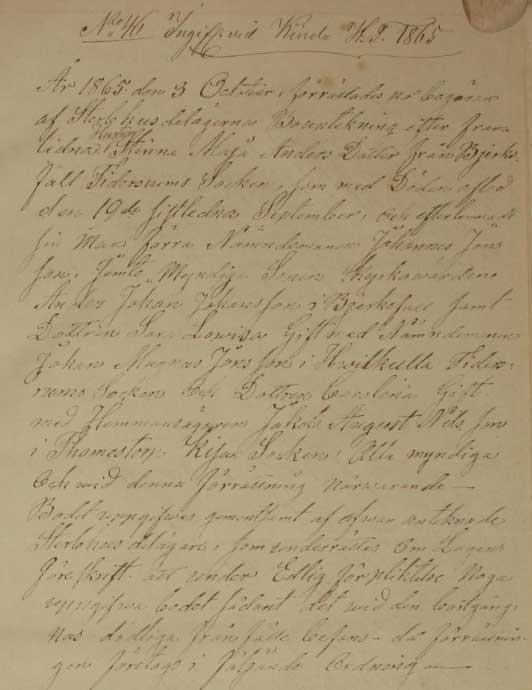 No 46 Ingif. vid Kinda H.T. 1865
År 1865 den 3 October, förrättades på begäran
af Sterbhusdelägarna Bouptekning efter fram
lidna Hustru Stina Maja Anders Dotter från Björks
fall Tidersrums Socken, som med Döden afled
den 19de sistledna September, och efterlemnade
sin Man förra Nämndemannen Johannes Jons
son, Jämte Myndiga Sonen Kyrkowärden
Anders Johan Johansson i Björksfall samt
Dottren Sara Lowisa Gift med Nämndemannen
Johan Magnus Jonsson i Hwilkulla Tiders
rums Socken och Dottren Carolina Gift
med Hemmansägaren Jakob August Nilsson
i Thomestorp Kisa Socken, Alla myndiga
Och wid denna förrättning närwarande
Bodet uppgifwes gemensamt af ofwan anteknade
Sterbhusdelägare, som underrättes om Lagens
föreskrift att under Edlig förpliktelse Noga
uppgifwa bodet sådant det wid den bortgång
nas dödliga frånfälle befans då förrättnin
gen företogs i följande Ordning